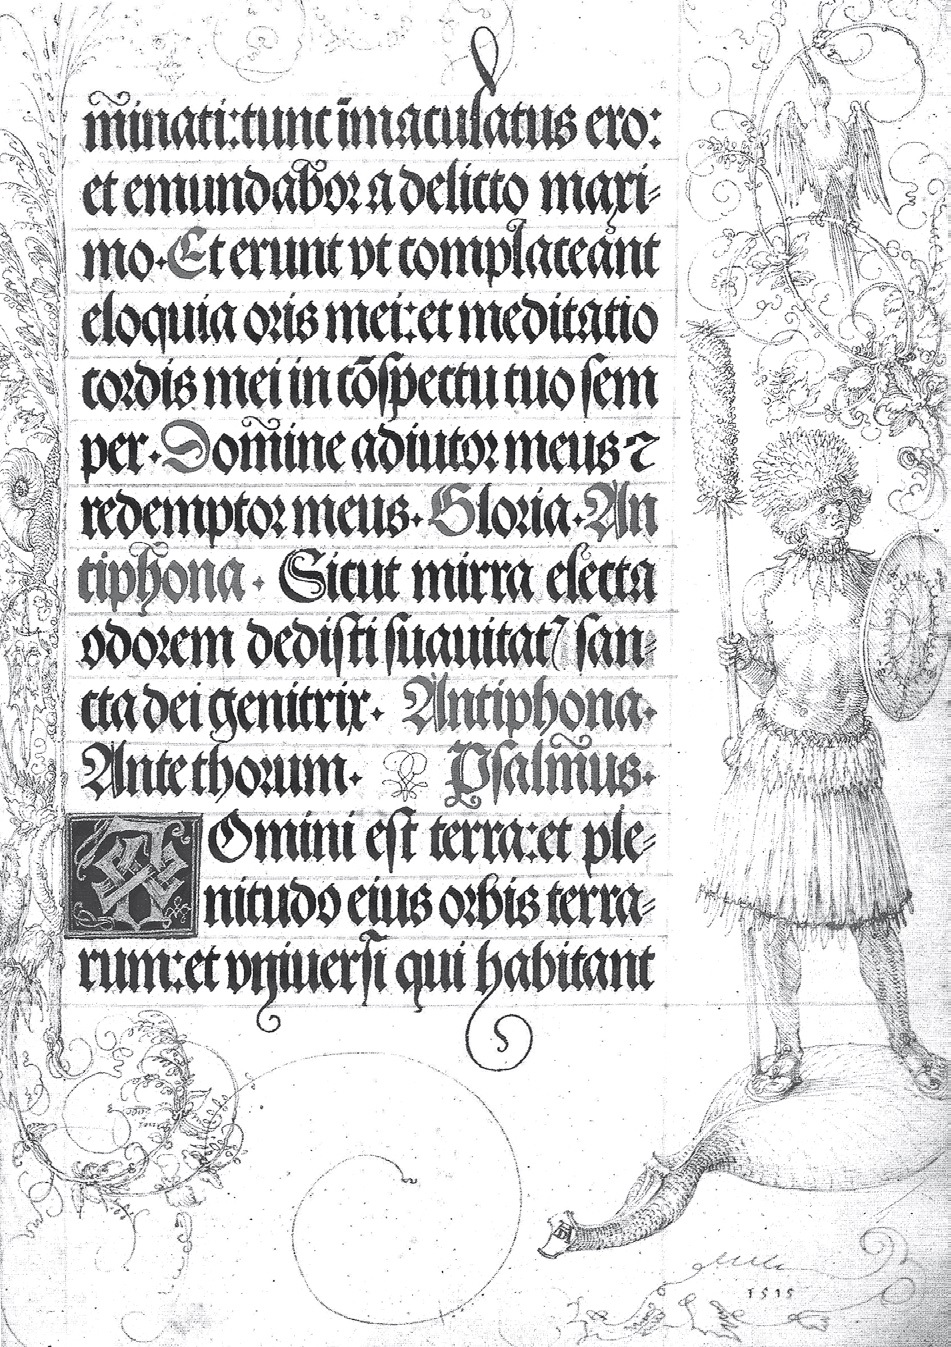 m̄inati:tunc īmaculatus ero:
et emundabor a delicto maxi-
mo. Et erunt vt complaceant
eloquia oris mei: et meditatio
cordis mei in cōspectu tuo sem
per. Dom̄ine adiutor meus ⁊
redemptor meus. Gloria. An
tiphona. Sicut mirra electa
odorem dedisti suauitatꝭ san-
cta dei genitrix. Antiphona.
Ante thorum. Psalm̄us.
DOmini est terra: et ple-
nitudo eius orbis terra-
rum: et vniuersi qui habitant
AD
1515